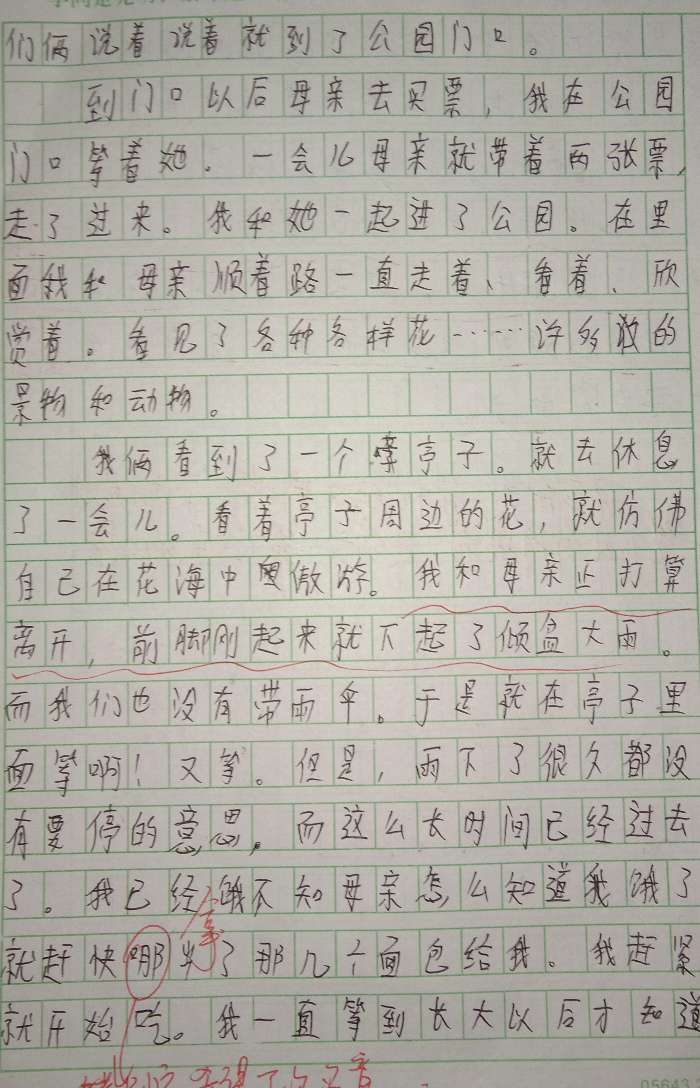 们俩说着说着就到了公园门口。
到门口以后母亲去买票，我在公园
门口等着她。一会儿母亲就带着两张票，
走了过来。我和她一起进了公园。在里
面我和母亲顺着路一直走着、看着、欣
赏着。看见了各种各样花……许多的
景物和动物。
我俩看到了一个亭子。就去休息
了一会儿。看着亭子周边的花，就仿佛
自己在花海中遨游。我和母亲正打算
离开，前脚刚起来就下起了倾盆大雨。
而我们也没有带雨伞。于是就在亭子里
面等啊！又等。但是，雨下了很久都没
有要停的意思，而这么长时间已经过去
了。我已经饿不知母亲怎么知道我饿了
就赶快那了那几个面包给我。我赶紧
就开始吃。我一直等到长大以后才知道
05646